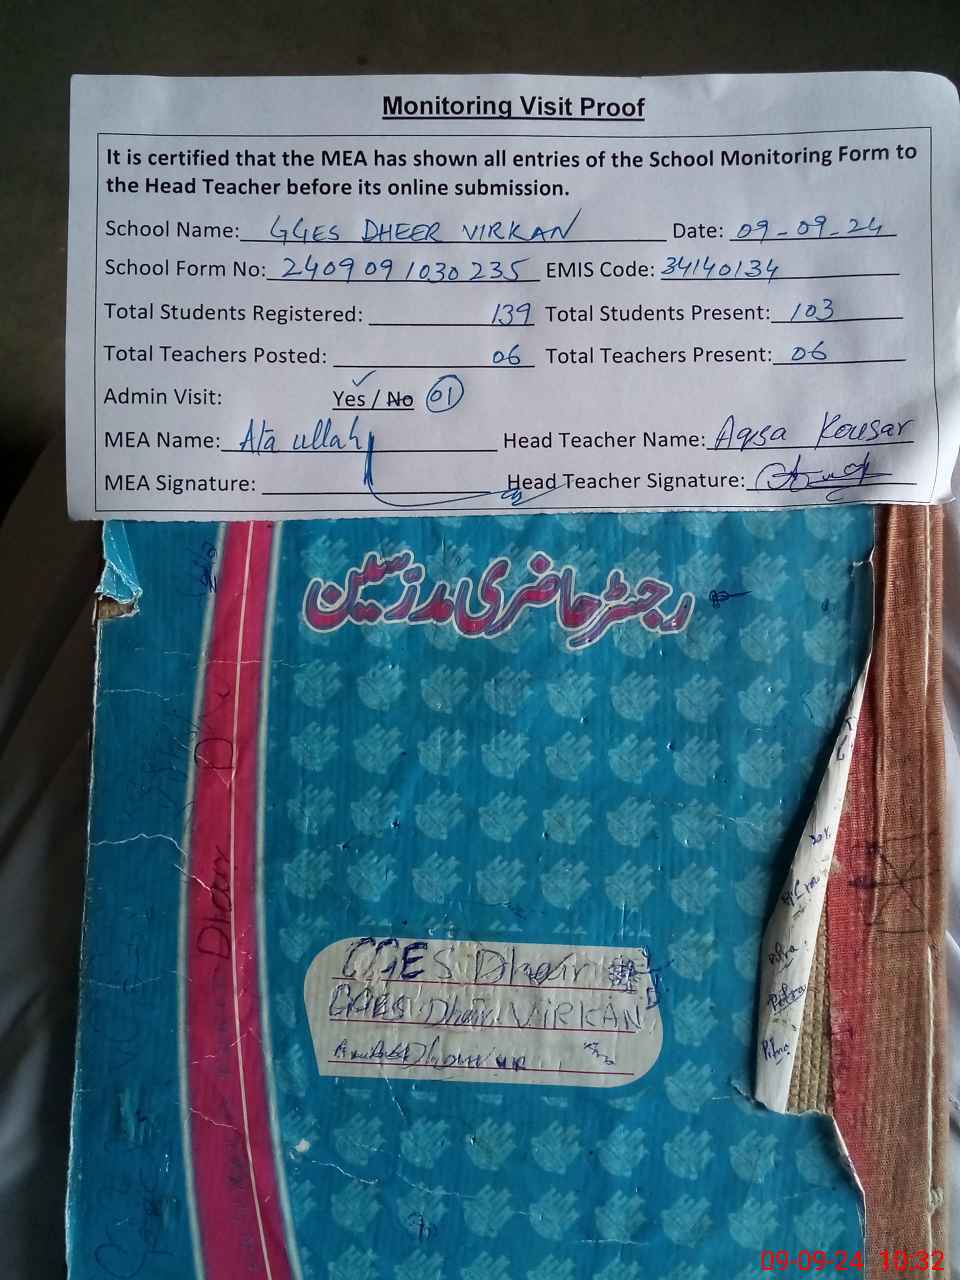 Monitoring Visit Proof
It is certified that the MEA has shown all entries of the School Monitoring Form to
the Head Teacher before its online submission.
School Name: GGES DHEER VIRKAN Date: 09-09-24
School Form No: 2409091030235 EMIS Code: 34140134
Total Students Registered: 139 Total Students Present: 103
Total Teachers Posted: 06 Total Teachers Present: 06
Admin Visit: Yes / No 01
MEA Name: Ata ullah Head Teacher Name: Aqsa Kousar
MEA Signature: Head Teacher Signature:
رجسٹر حاضری مدرسین
Dheer
GGES Dheir
GGES Dheir VIRKAN
09-09-24 10:32